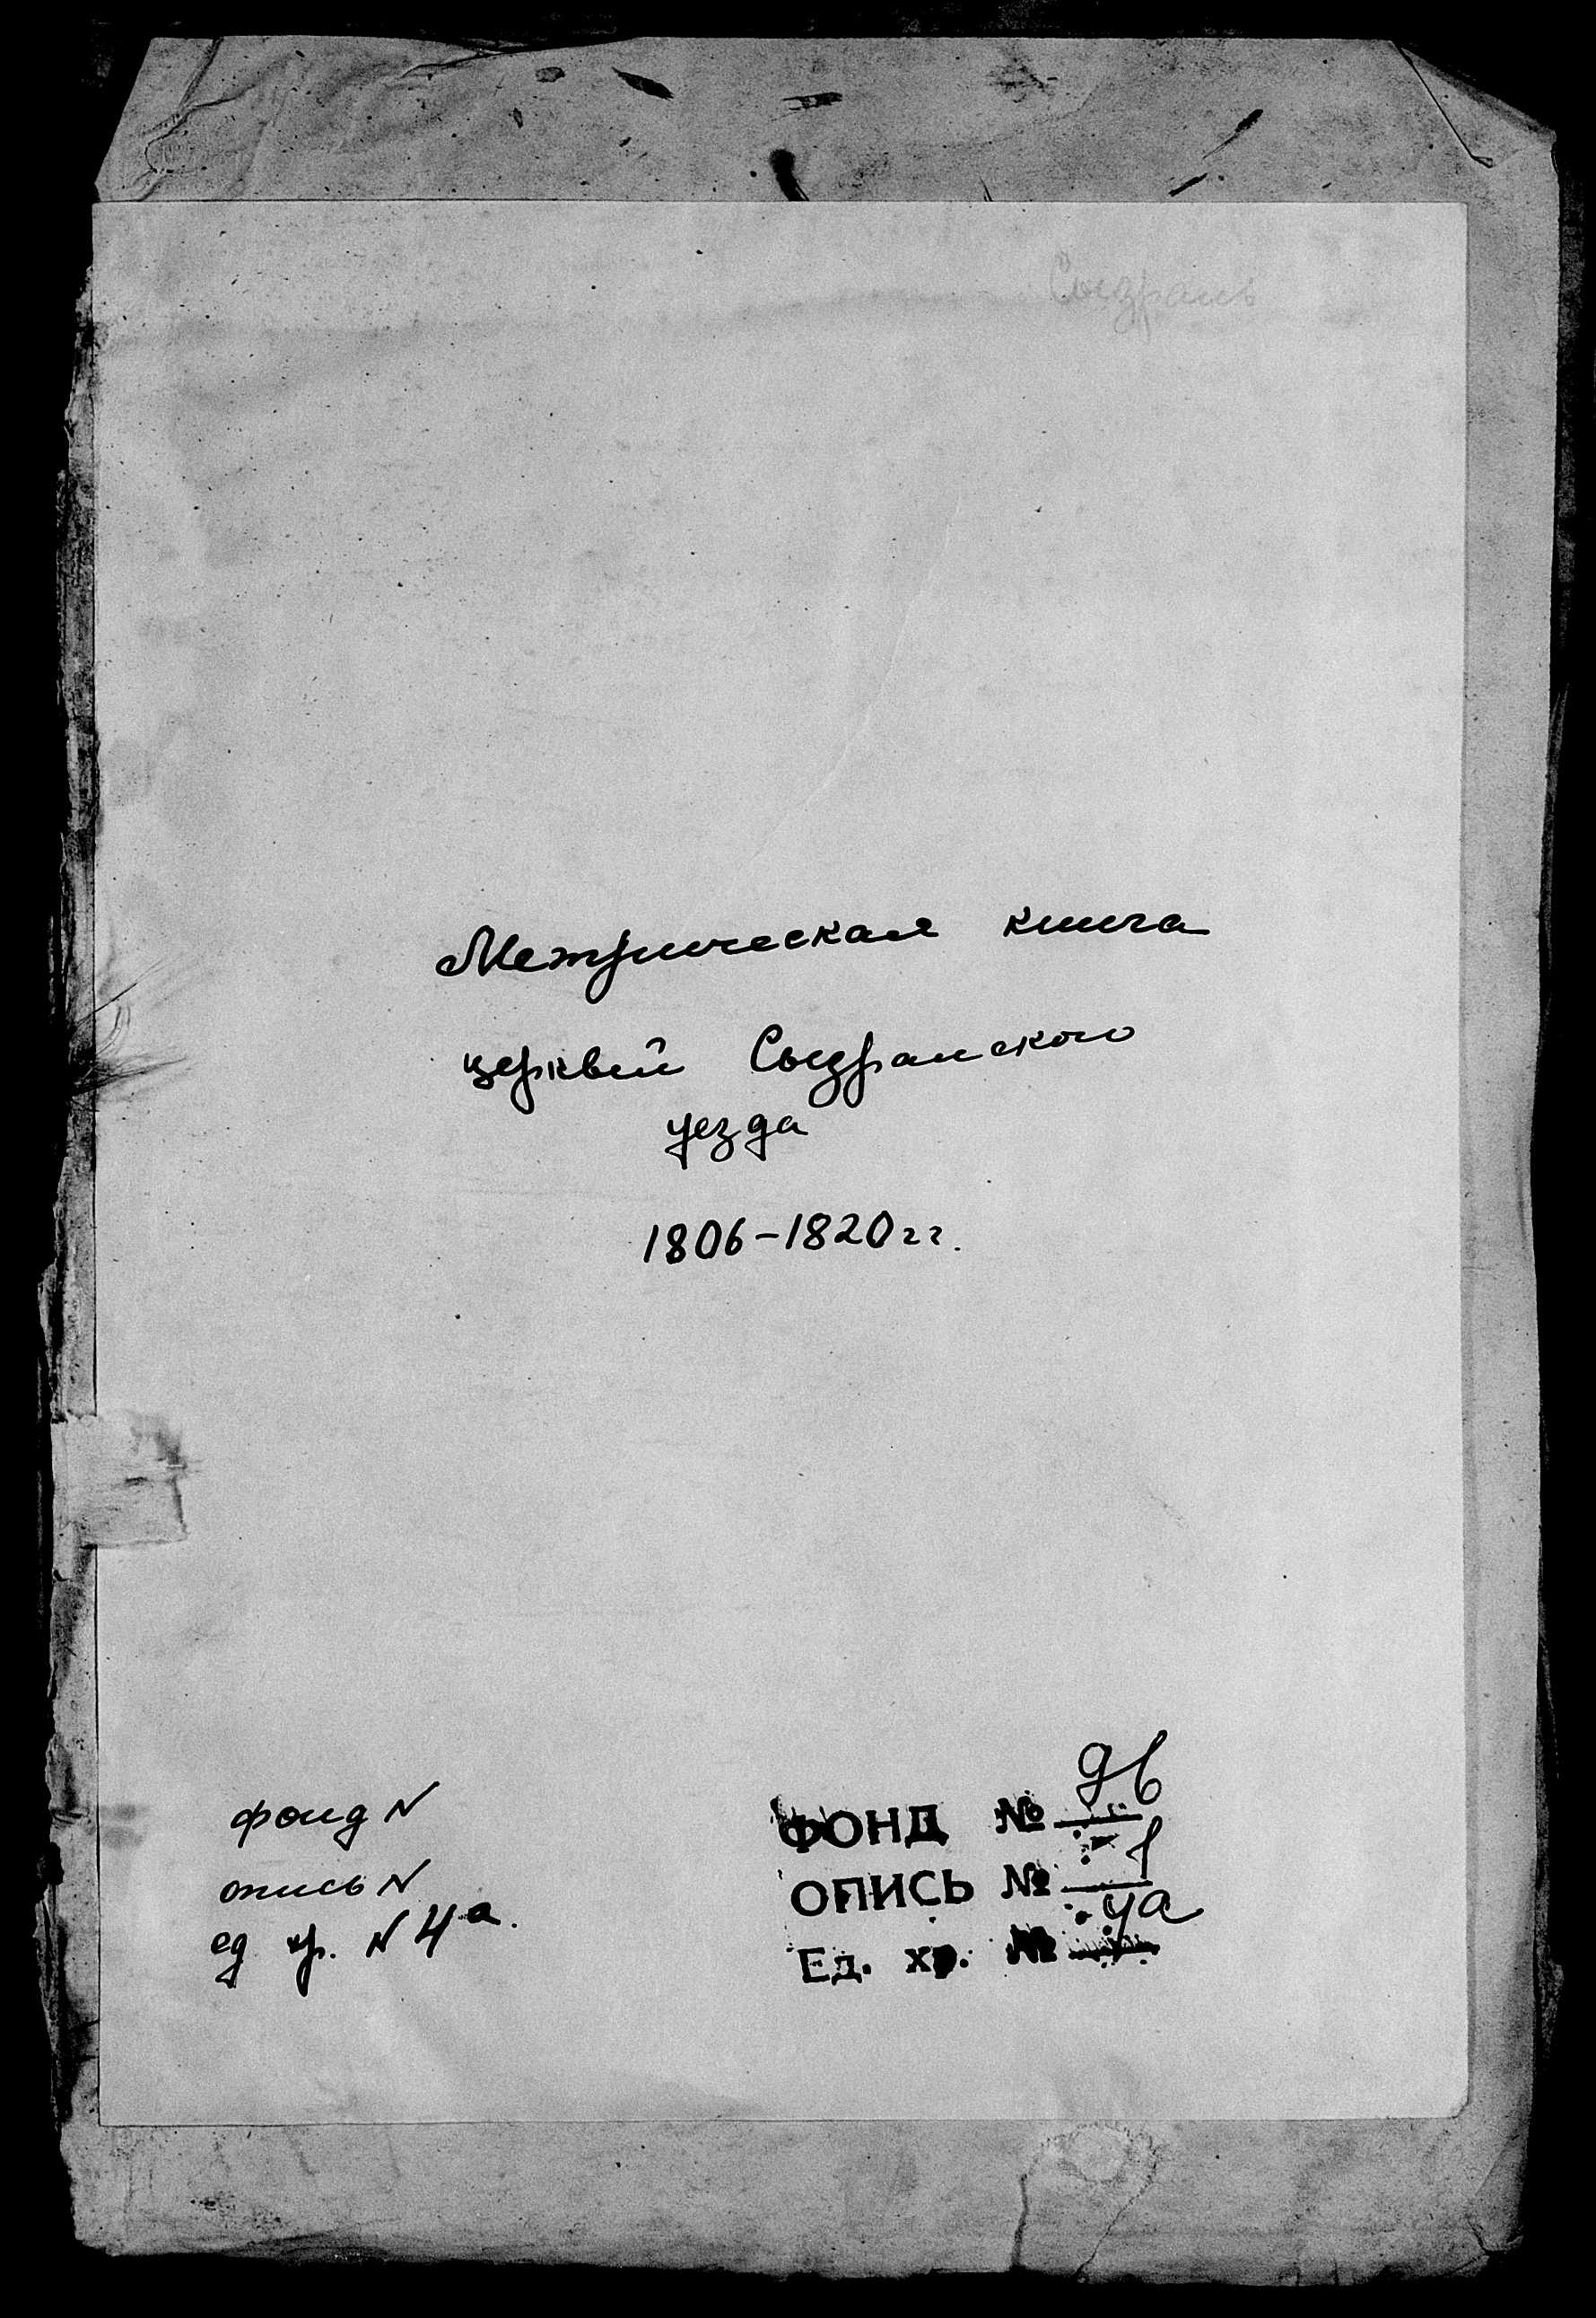 Сызрань
Метрическая книга
церквей Сызранского
уезда
1806-1820 гг.
фонд N
опись N
ед хр. N 4а.
ФОНД № 96
ОПИСЬ № 1
Ед. хр. № 4а